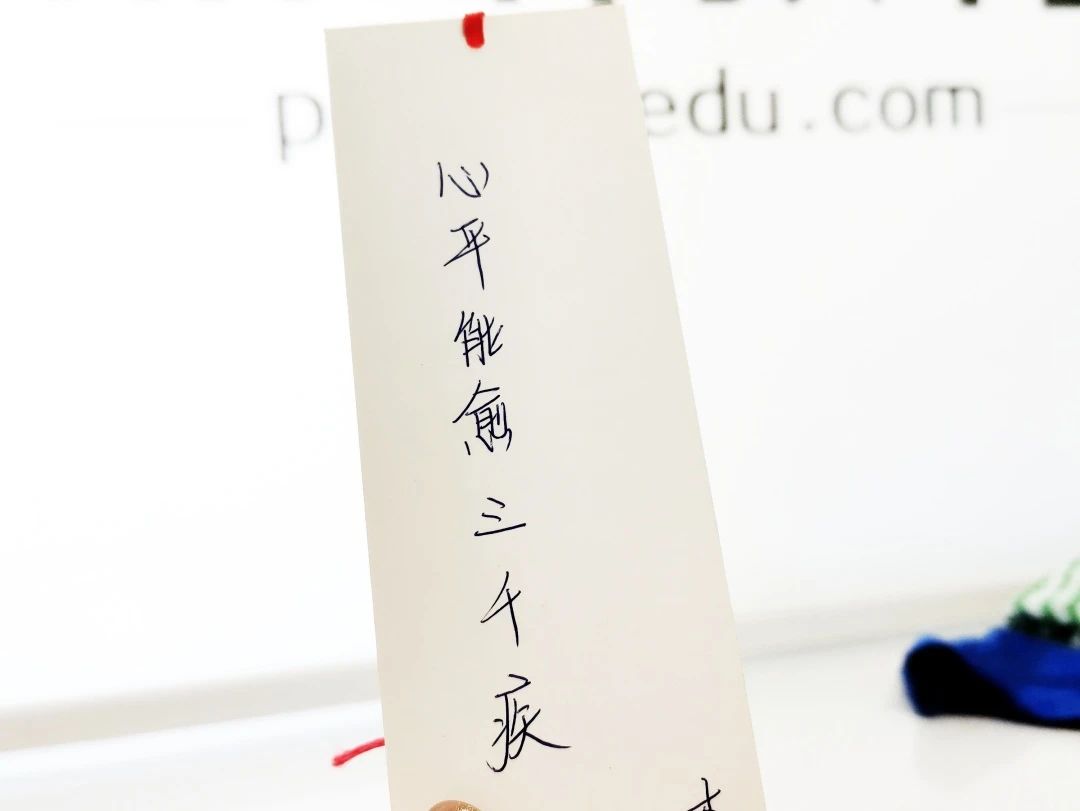 edu.com
心平能愈三千疾